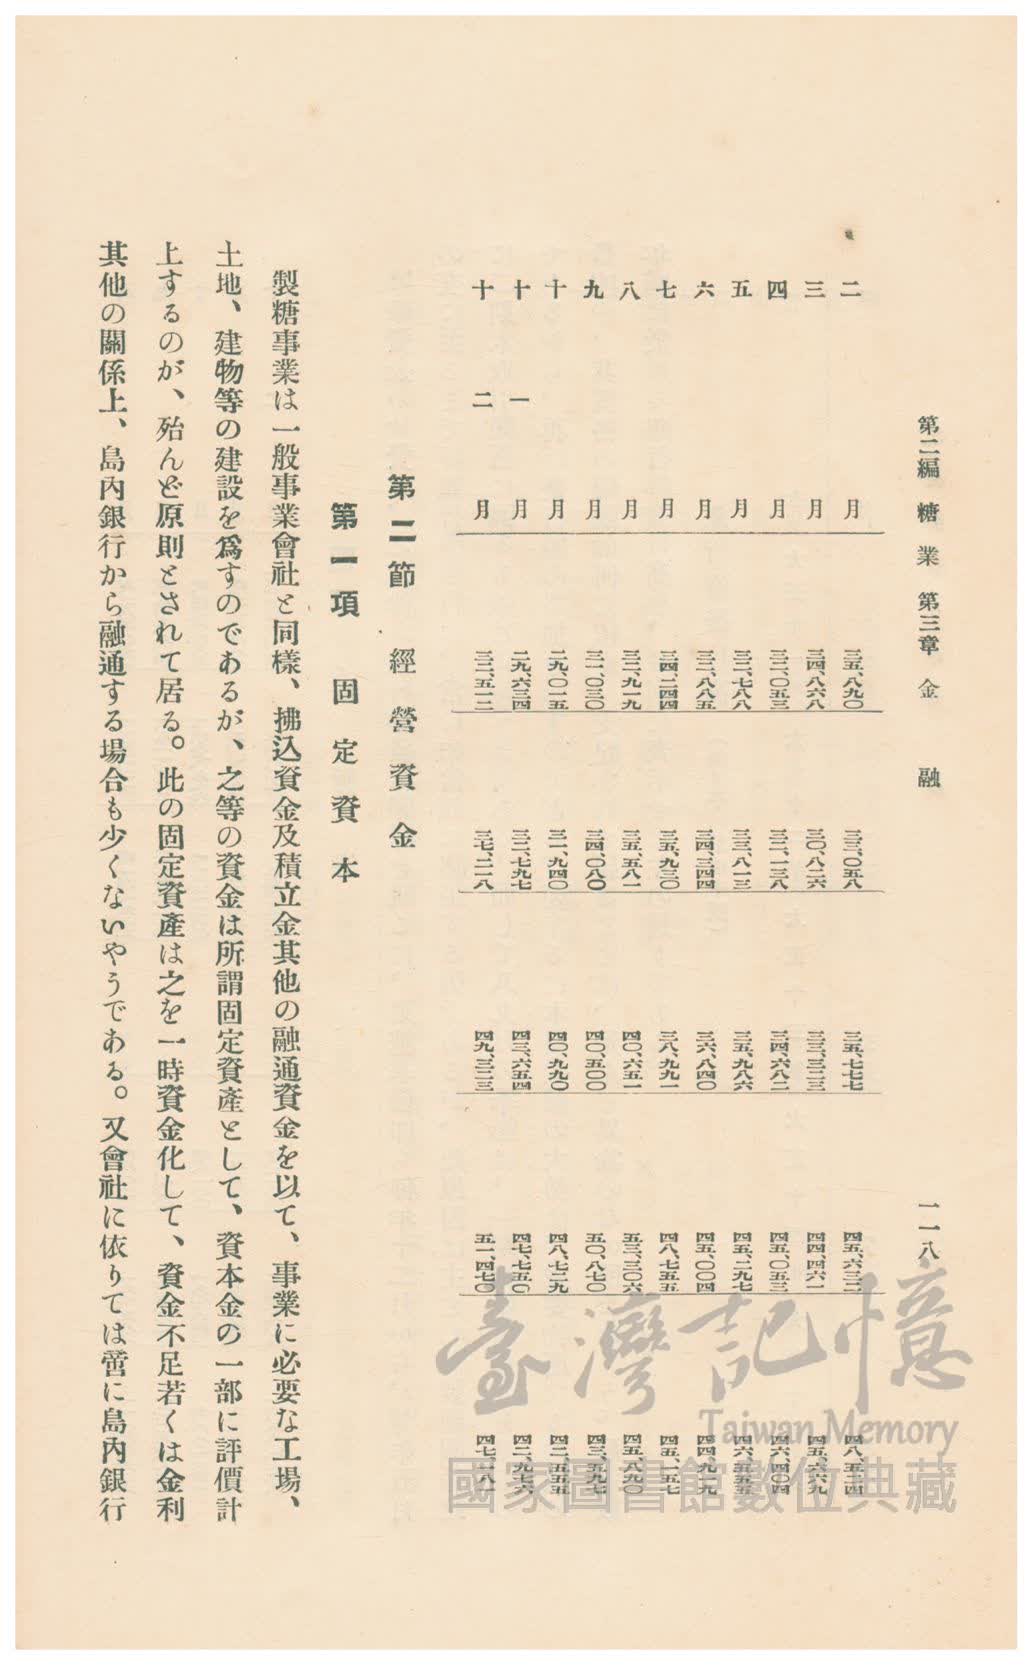 第二編 糖業 第三章 金融 一一八
二月 三五、八九〇 三三、〇五八 三五、七七七 四五、六三二 四八、五二四
三月 三四、八六八 三〇、八二六 三三、三二三 四四、四六一 四五、六六九
四月 三二、〇五三 三二、一三八 三四、六八二 四五、〇五三 四六、四〇四
五月 三二、七八八 三三、八一三 三五、九八六 四五、二九七 四六、五五五
六月 三二、八八五 三四、三四四 三六、八四〇 四五、〇〇四 四四、九一九
七月 三四、二四四 三五、九三〇 三八、九九一 四八、七五五 四五、一五七
八月 三二、九一九 三五、五八一 四〇、六五一 五三、三〇六 四五、八九〇
九月 三一、〇三〇 三四、〇八〇 四〇、五〇〇 五〇、八七〇 四三、五九七
十月 二九、〇二五 三一、九四〇 四〇、九九〇 四八、七二九 四二、五五五
十一月 二九、六三四 三三、七九七 四三、六五四 四七、七五〇 四二、九七六
十二月 三二、五一二 三七、二一八 四九、三二三 五一、四七〇 四七、一八一
第二節 經營資金
第一項 固定資本
製糖事業は一般事業會社と同樣、拂込資金及積立金其他の融通資金を以て、事業に必要な工場、
土地、建物等の建設を爲すのであるが、之等の資金は所謂固定資產として、資本金の一部に評價計
上するのが、殆んど原則とされて居る。此の固定資產は之を一時資金化して、資金不足若くは金利
其他の關係上、島內銀行から融通する場合も少くないやうである。又會社に依りては啻に島內銀行
臺灣記憶
Taiwan Memory
國家圖書館數位典藏